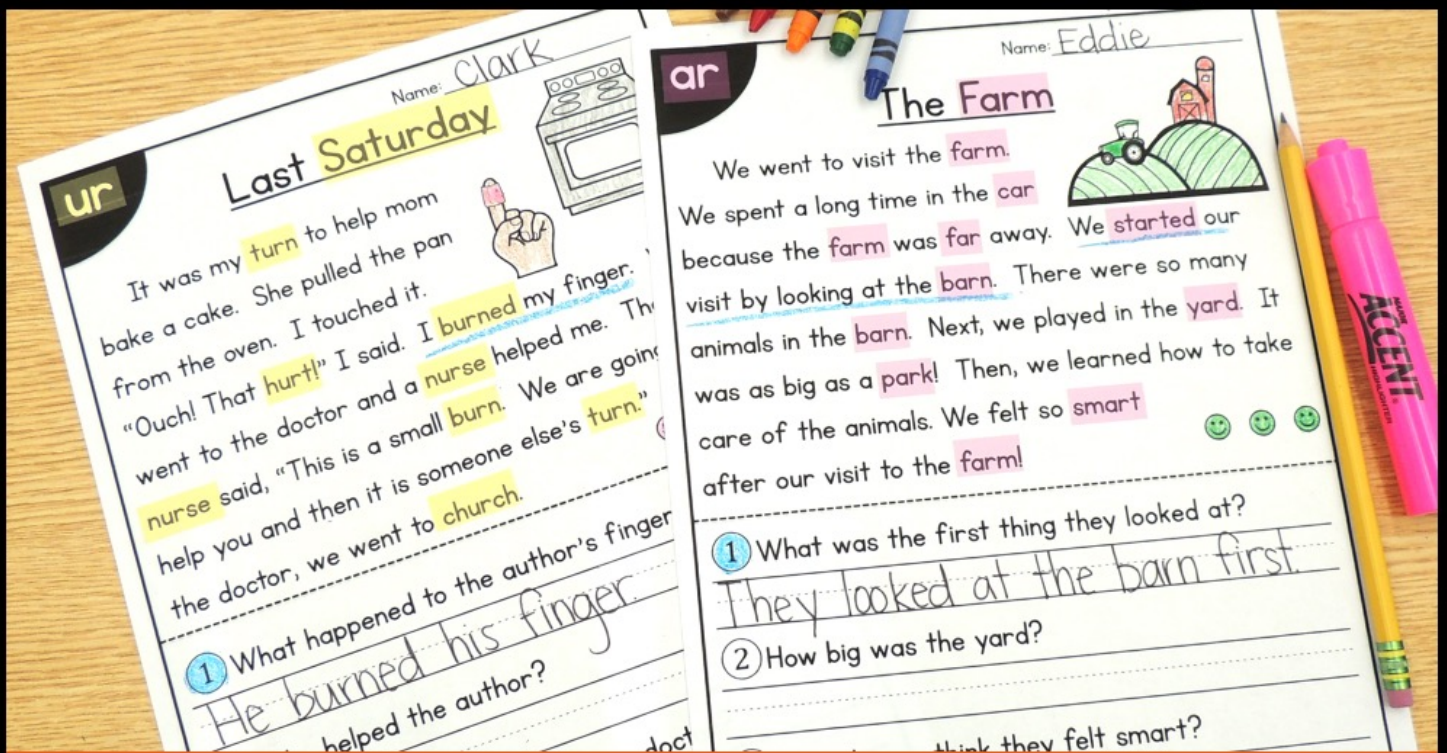 ur
Name: Clark
Last Saturday
It was my turn to help mom
bake a cake. She pulled the pan
from the oven. I touched it.
"Ouch! That hurt!" I said. I burned my finger.
went to the doctor and a nurse helped me. The
nurse said, "This is a small burn. We are going
help you and then it is someone else's turn."
the doctor, we went to church.
1 What happened to the author's finger
He burned his finger.
helped the author?
doct
ar
Name: Eddie
The Farm
We went to visit the farm.
We spent a long time in the car
because the farm was far away. We started our
visit by looking at the barn. There were so many
animals in the barn. Next, we played in the yard. It
was as big as a park! Then, we learned how to take
care of the animals. We felt so smart
after our visit to the farm!
1 What was the first thing they looked at?
They looked at the barn first.
2 How big was the yard?
think they felt smart?
MAJOR
ACCENT
HIGHLIGHTER